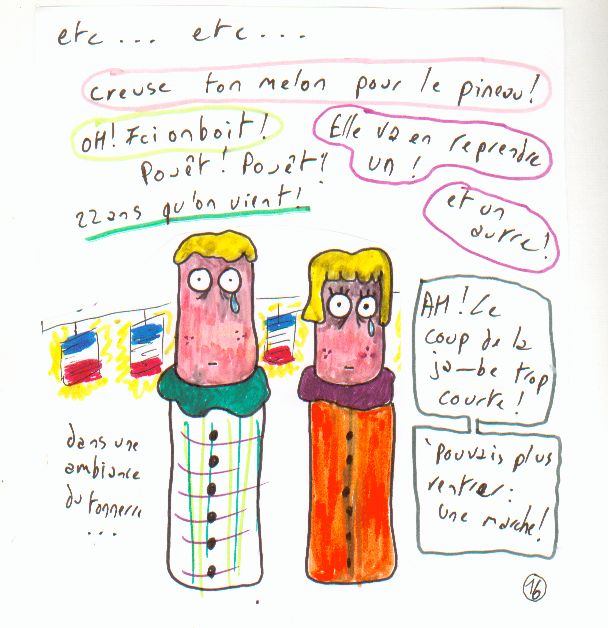 etc... etc...
creuse ton melon pour le pineau!
OH! Ici on boit!
Pouêt! Pouêt!
22 ans qu'on vient!
Elle va en reprendre
un!
et un
autre!
AH! Le
coup de la
ja-be trop
courte!
'Pouvais plus
rentrer:
une marche!
dans une
ambiance
du tonnerre
...
16